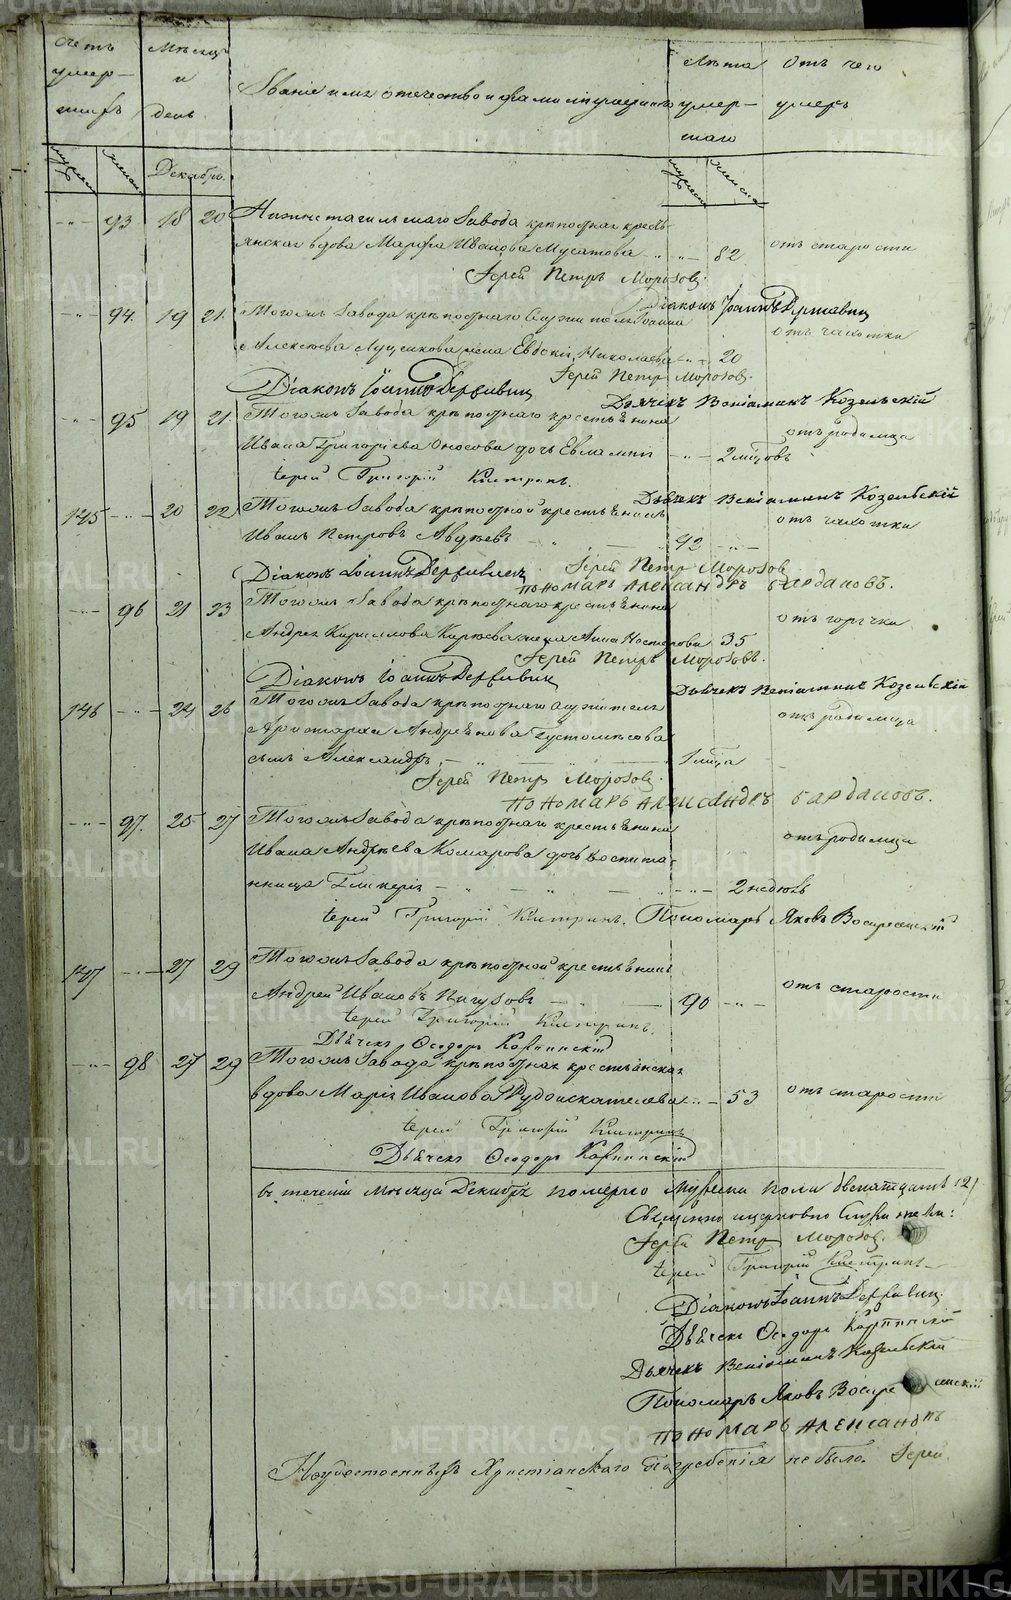 Счетъ умер-шихъ
Мѣсяцъ и день
Званіе имя отечество и фамилія умершихъ
Лѣта умер-шаго
Отъ чего умеръ
мужеск
женск
Декабрь
мужеск
женска
93 18 20 Нижнетагильскаго Завода крѣпостная кресть-
янская вдова Марфа Иванова Мусатова 82 отъ старости
Іерей Петръ Морозовъ
Діаконъ Іоаннъ Державинъ
94. 19 21. Тогожъ Завода крѣпостнаго Служителя
Алексѣева жена Евдокія Николаева 20 отъ чахотки
Іерей Петръ Морозовъ
Діаконъ Іоаннъ
Дьячекъ Веніаминъ Козельскій
95 19 21. Тогожъ Завода крѣпостнаго крестьянина
Ивана Григорьева Оносова дочь Евлампія 2 мѣсяцовъ отъ родимца
Іерей Григорій
Дьячекъ Веніаминъ Козельскій
145 20 22 Тогожъ Завода крѣпостной крестьянинъ
Иванъ Петровъ Авдѣевъ 42 отъ чахотки
Іерей Петръ Морозов
Діаконъ Іоаннъ
Пономарь Александръ Бардановъ.
96 21 23 Тогожъ Завода крѣпостнаго крестьянина
Андрея Кирилова жена Анна Нестерова 35 отъ горячки
Іерей Петръ Морозовъ.
Діаконъ Іоаннъ
Дьячекъ Веніаминъ Козельскій
146 24 26 Тогожъ Завода крѣпостнаго служителя
Аристарха Андреянова Густомѣсова
сынъ Александръ 1 мѣсяца отъ родимца
Іерей Петръ Морозовъ
Пономарь Александръ Бардановъ.
97. 25 27 Тогожъ Завода крѣпостнаго крестьянина
Ивана Андрѣева Комарова дочь воспита-
нница Гликерія 2 недѣль отъ родимца
Іерей Григорій
Пономарь Яковъ Воскресенскій
147 27 29 Тогожъ Завода крѣпостной крестьянинъ
Андрей Ивановъ Пигузовъ 90 отъ старости
Іерей Григорій
Дьячекъ Ѳеодоръ Карпинскій
98 27 29 Тогожъ Завода крѣпостная крестьянская
вдова Марія Иванова Рудоискателева 53 отъ старости
Іерей Григорій
Дьячекъ Ѳеодоръ Карпинскій
въ теченіи мѣсяца Декабря померло мужеска пола двенатцать 12/
Священно церковно служители:
Іерей Петръ Морозовъ.
Іерей Григорій
Діаконъ Іоаннъ
Дьячекъ Ѳеодоръ Карпинскій
Дьячекъ Веніаминъ Козельскій
Пономарь Яковъ Воскресенскій
Пономарь Александръ
Неудостоенныхъ Христіанскаго погребенія не было. Іерей
METRIKI.GASO-URAL.RU